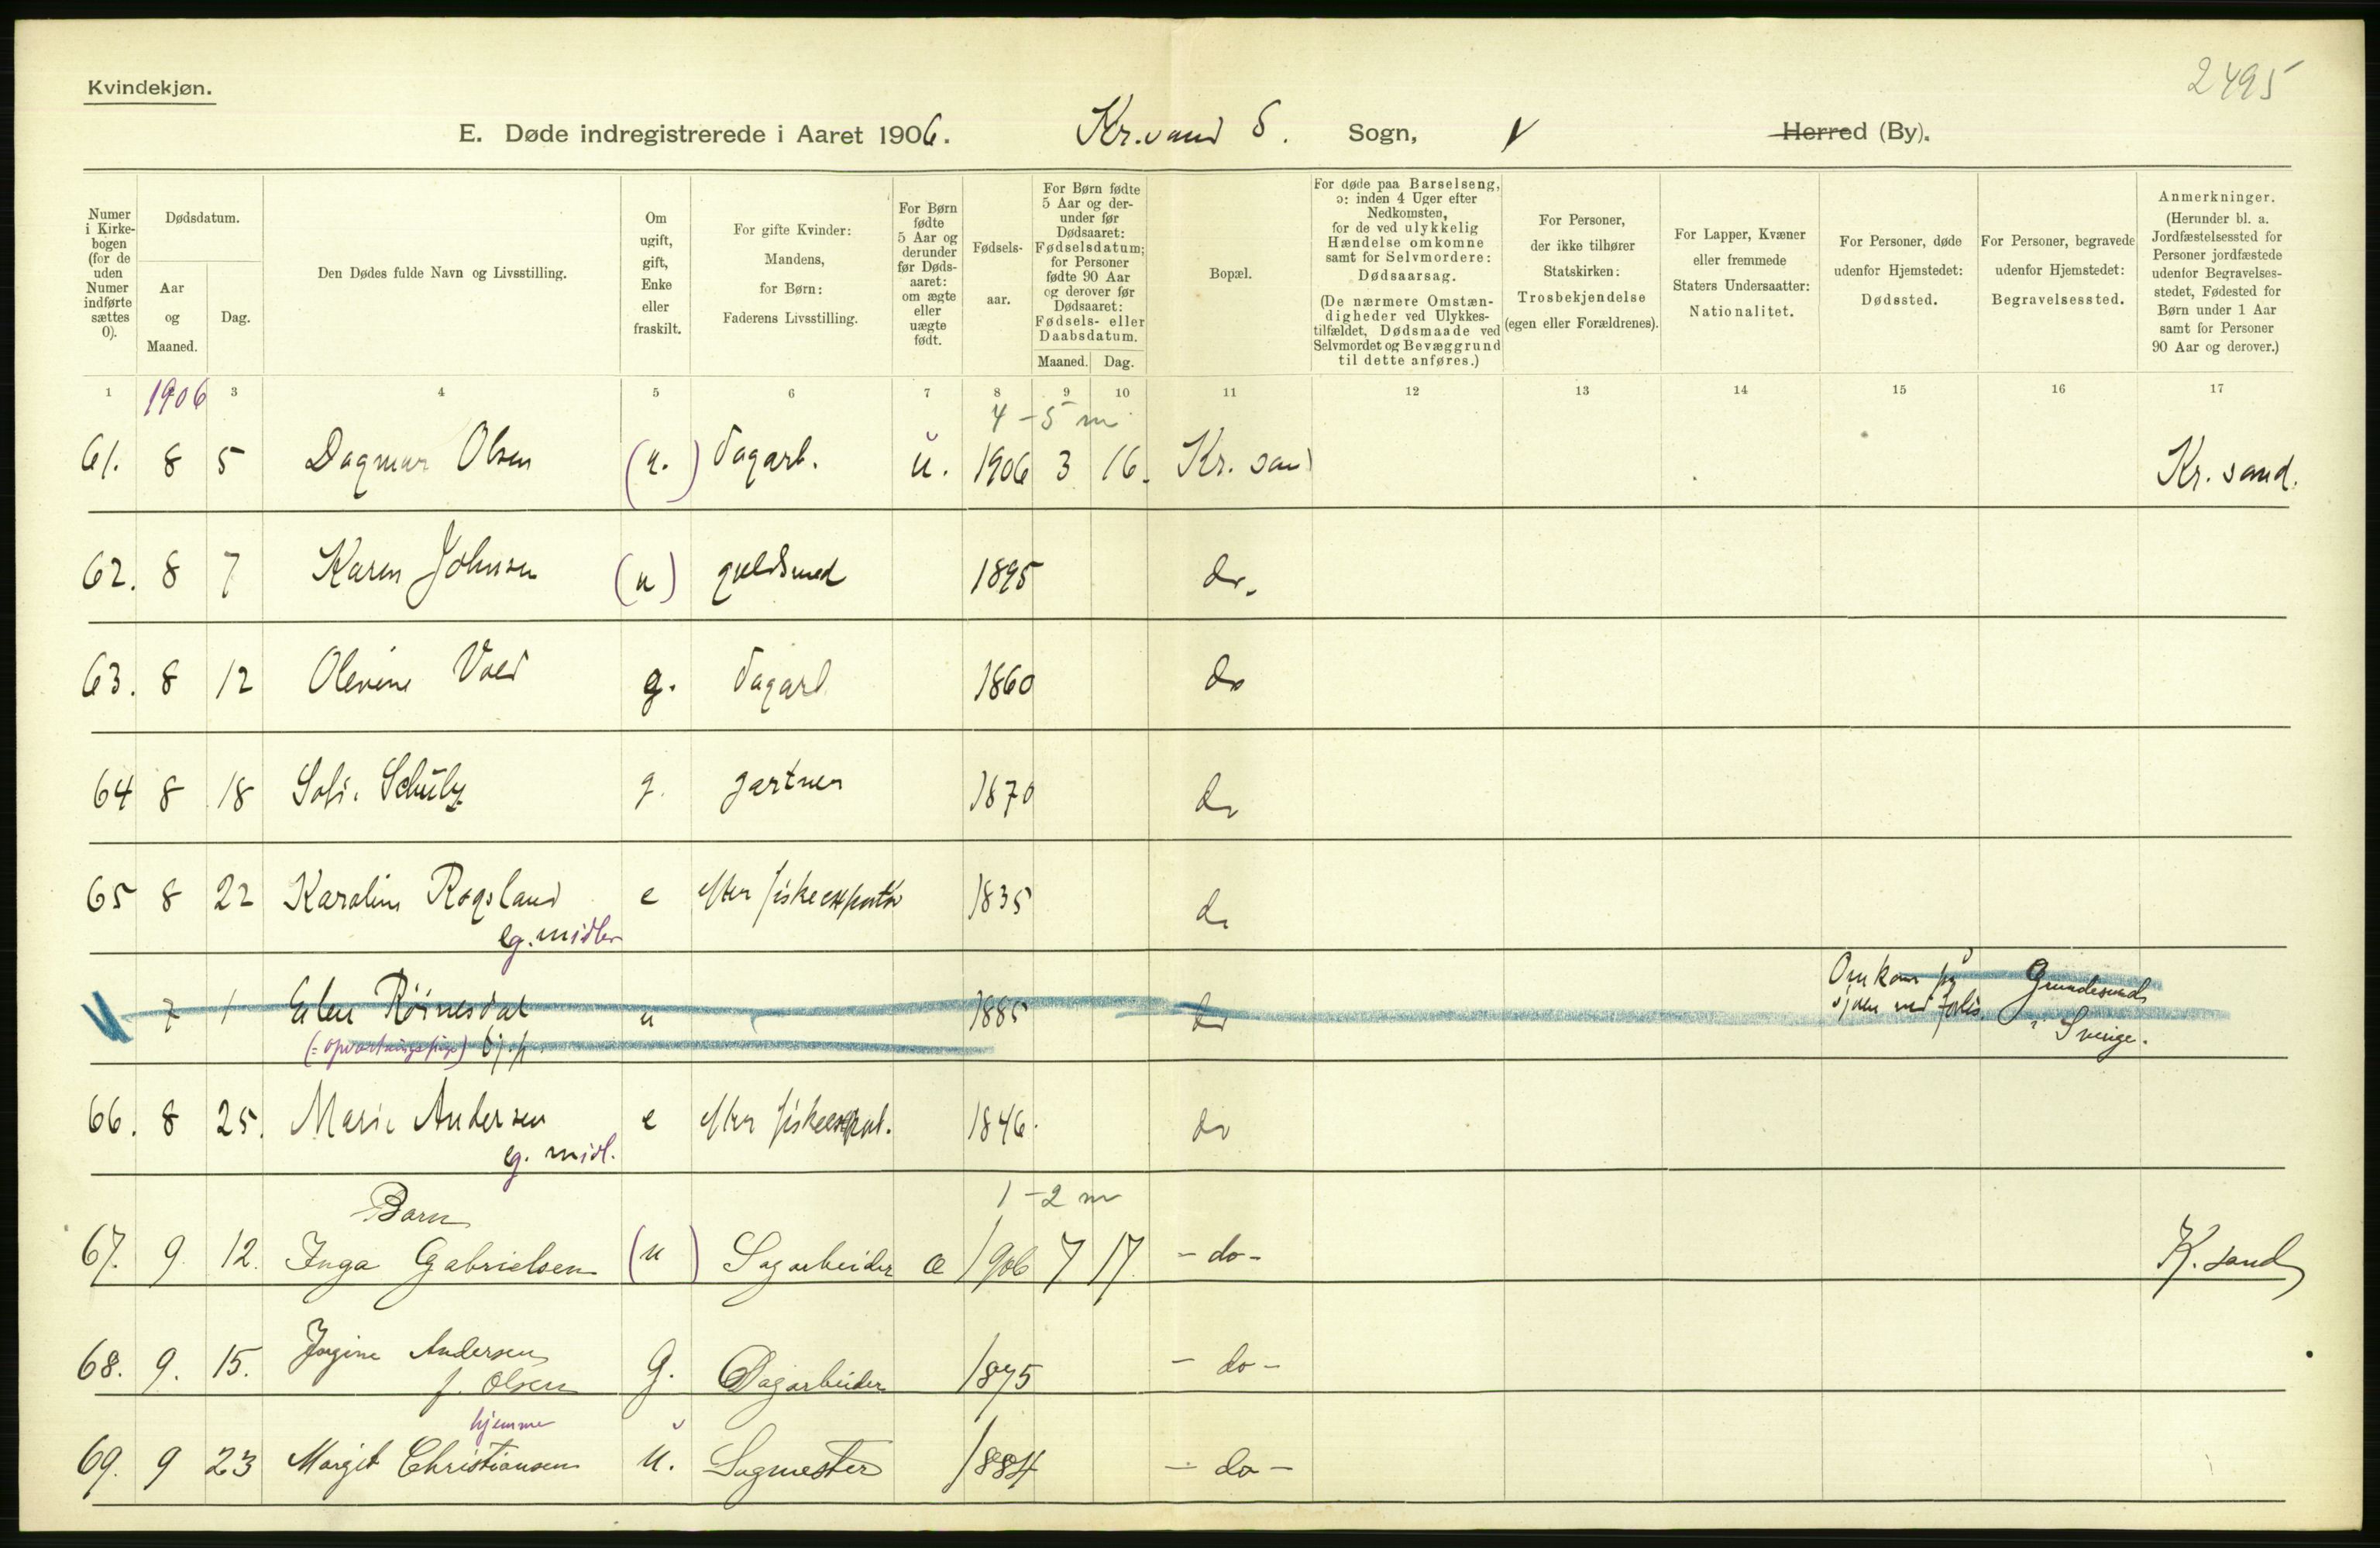 2495
Kvindekjøn.
E. Døde indregistrerede i Aaret 1906. Kr.sand S. Sogn, Herred (By).
Numer i Kirkebogen (for de uden Numer indførte sættes 0).
Dødsdatum.
Aar og Maaned.
Dag.
Den Dødes fulde Navn og Livsstilling.
Om ugift, gift, Enke eller fraskilt.
For gifte Kvinder: Mandens, for Børn: Faderens Livsstilling.
For Børn fødte 5 Aar og derunder før Dødsaaret: om ægte eller uægte født.
Fødselsaar.
For Børn fødte 5 Aar og derunder før Dødsaaret: Fødselsdatum; for Personer fødte 90 Aar og derover før Dødsaaret: Fødsels- eller Daabsdatum.
Maaned. Dag.
Bopæl.
For døde paa Barselseng, ɔ: inden 4 Uger efter Nedkomsten, for de ved ulykkelig Hændelse omkomne samt for Selvmordere: Dødsaarsag.
(De nærmere Omstændigheder ved Ulykkestilfældet, Dødsmaade ved Selvmordet og Bevæggrund til dette anføres.)
For Personer, der ikke tilhører Statskirken: Trosbekjendelse (egen eller Forældrenes).
For Lapper, Kvæner eller fremmede Staters Undersaatter: Nationalitet.
For Personer, døde udenfor Hjemstedet: Dødssted.
For Personer, begravede udenfor Hjemstedet: Begravelsessted.
Anmerkninger. (Herunder bl. a. Jordfæstelsessted for Personer jordfæstede udenfor Begravelsesstedet, Fødested for Børn under 1 Aar samt for Personer 90 Aar og derover.)
1 1906 3 4 5 6 7 8 9 10 11 12 13 14 15 16 17
4 - 5 m
61. 8 5 Dagmar Olsen (u.) dagarb. u. 1906 3 16. Kr. sand Kr. sand.
62. 8 7 Karen Johnsen (u) guldsmed 1895 do.
63. 8 12 Olevine Vold g. dagarb 1860 do
64 8 18 Sofi. Schulz g. gartner 1870 do
65 8 22 Karoline Rogsland e efter fiskeexportør 1835 do
eg. midler
7 1 Elen u 1885 do Omkom på Grundesund
sjøen ved forlis. i Sverige.
(: opvartningspige) tj. p.
66. 8 25. Marie Andersen e efter fiskeexport. 1846. do
eg. midl.
Barn 1 - 2 m
67. 9. 12. Inga Gabrielsen (u) Sagarbeider æ 1906 7 17. - do - K. sand
68. 9. 15. Jørgine Andersen G. Dagarbeider 1875 - do -
f. Olsen
hjemme
69. 9 23 Margit Christiansen U. Sagmester 1884 - do -